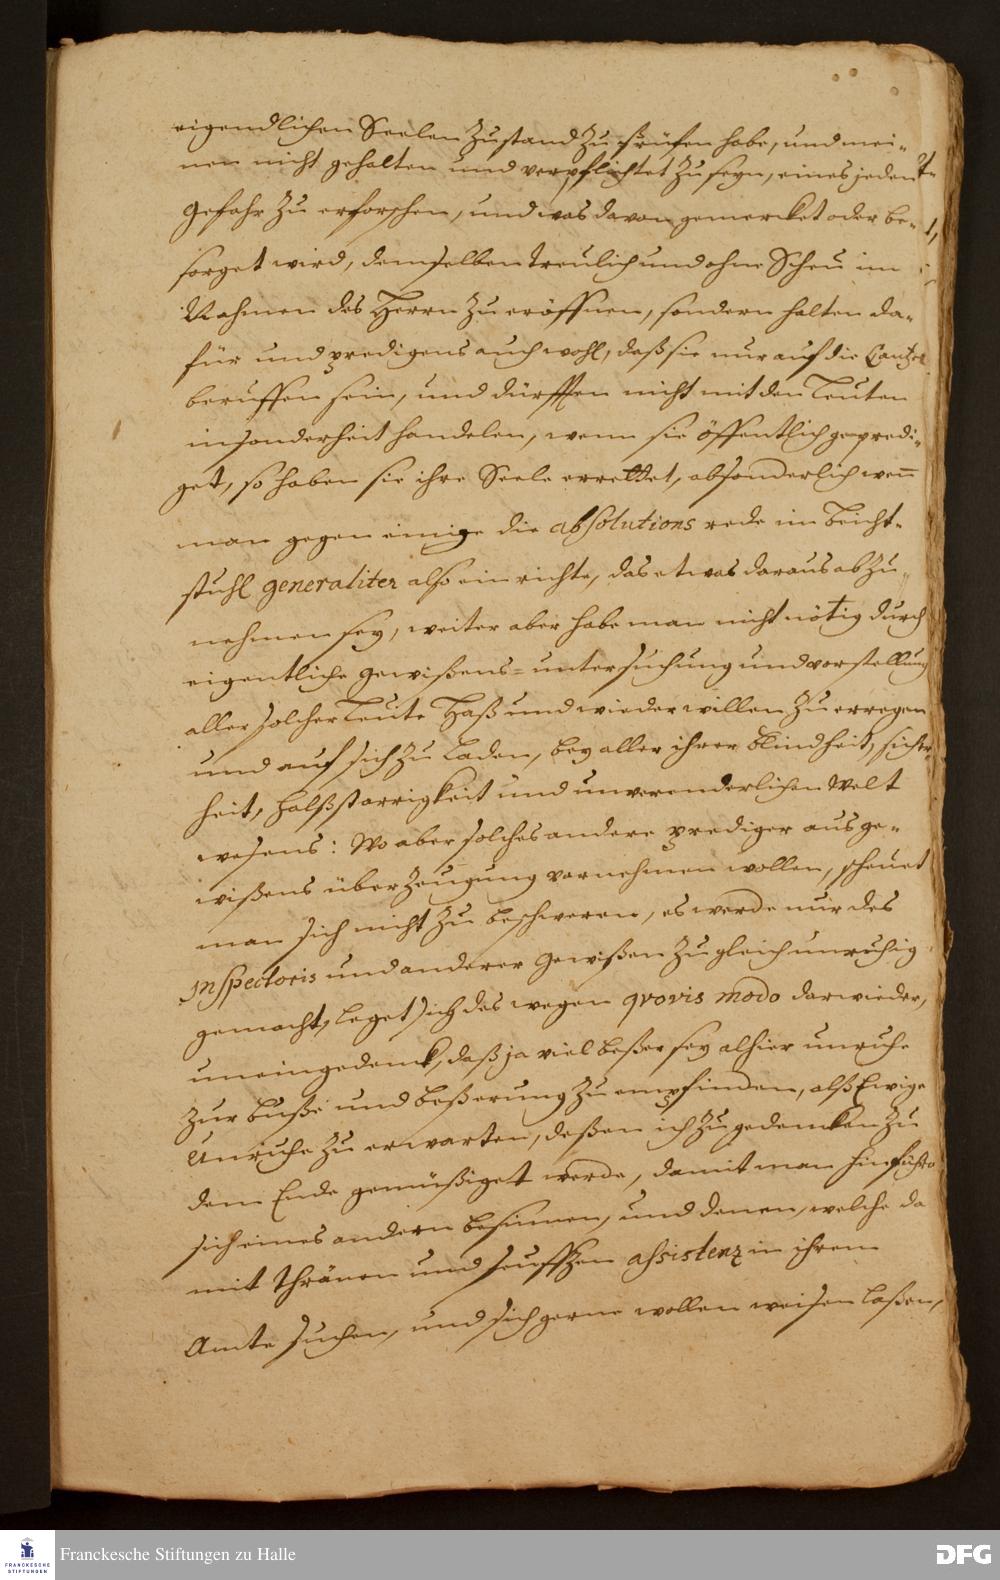 eigendlichen Seelen Zustand Zu prüfen habe, und mei-
nen nicht gehalten und verpflichtet Zu seyn, eines jeden
Gefahr Zu erforschen, und was davon gemercket oder be-
sorget wird, demselben treulich und ohne Scheu im
Nahmen des Herrn Zu eröffnen, sondern halten da-
für und predigens auch wohl, daß sie nur auf die Cantzel
beruffen sein, und dürfften nicht mit den Leuten
insonderheit handelen, wenn sie öffentlich gepredi-
get, so haben sie ihre Seele errettet, absonderlich wenn
man gegen einige die absolutions rede im Beicht-
stuhl generaliter also einrichte, das etwas daraus abZu-
nehmen sey, weiter aber habe man nicht nötig durch
eigentliche Gewißens-untersuchung und vorstellung
aller solcher Leute Haß und wiederwillen Zu erregen
und auf sich Zu laden, bey aller ihrer blindheit, sicher-
heit, Halßstarrigkeit und unverenderlichen Welt
wesens: Wo aber solches andere prediger aus ge-
wißens überZeugung vornehmen wollen, scheuet
man sich nicht Zu beschweren, es werde nur des
Inspectoris und anderer Gewißen Zugleich unruhig
gemacht, leget sich deswegen qvovis modo darwieder,
uneingedenck, daß ja viel beßer sey alhier unruhe
Zur buße und beßerung Zu empfinden, alß Ewige
Unruhe Zu erwarten, deßen ich Zu gedencken Zu
dem Ende gemüßiget werde, damit man hinführo
sich eines andern besinnen, und denen, welche da
mit thränen und seufftzen assistenz in ihrem
Amte suchen, und sich gerne wollen weisen laßen,
Franckesche Stiftungen zu Halle
FRANCKESCHE STIFTUNGEN
DFG